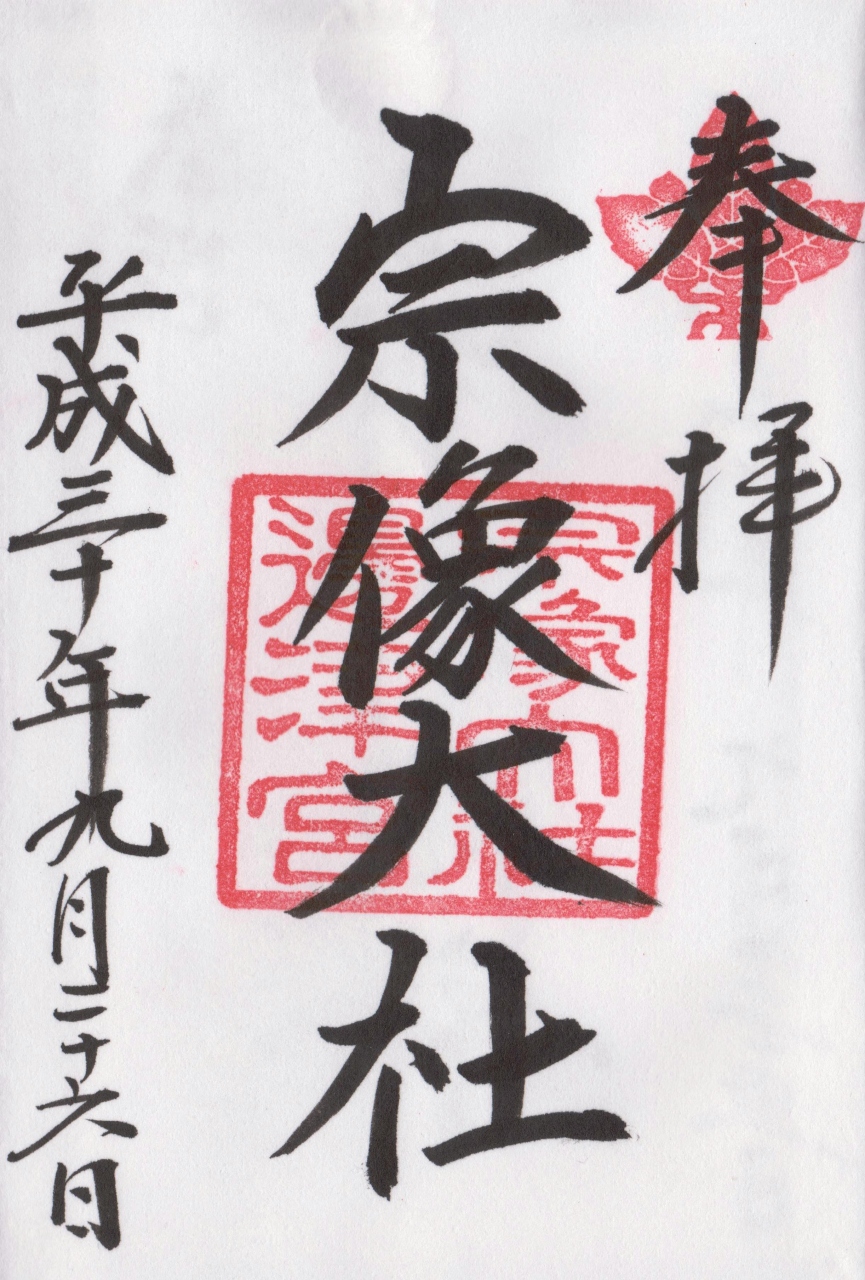 奉拝
宗像大社
宗像大社
邊津宮
平成三十年九月二十六日